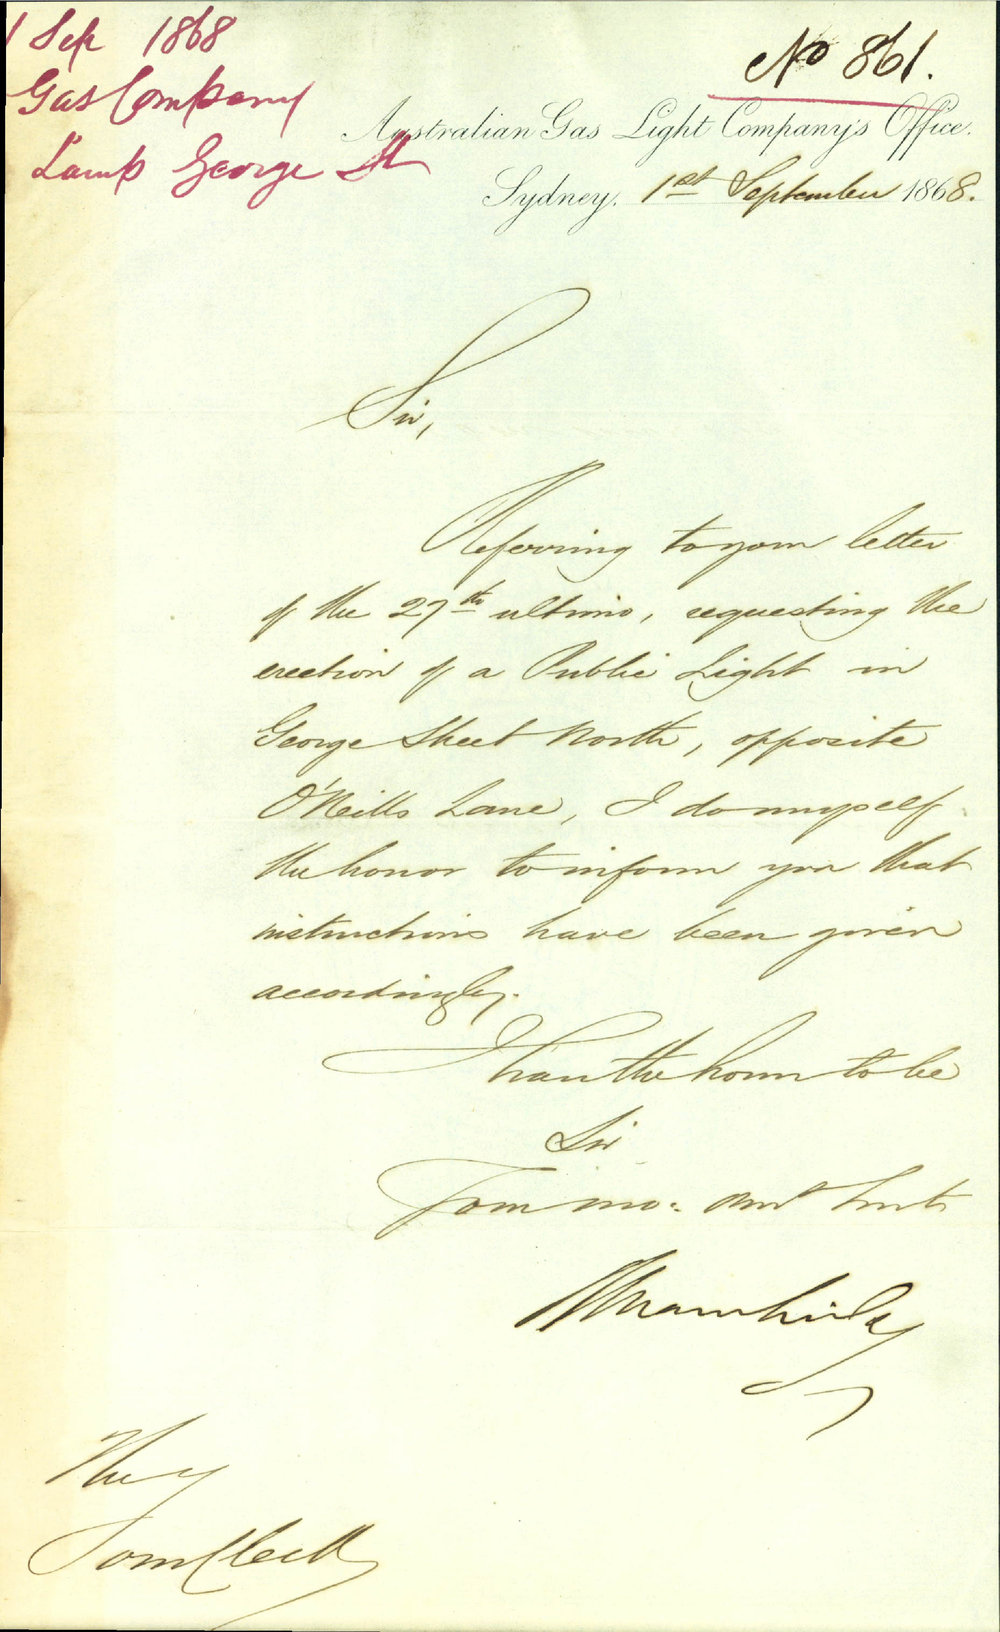 1 Sep 1868
Gas Company
Lamp George St
No 861.
Australian Gas Light Company's Office.
Sydney. 1st September 1868.
Sir,
Referring to your letter
of the 27th ultimo, requesting the
erection of a Public Light in
George Street North, opposite
O'Neills Lane, I do myself
the honor to inform you that
instructions have been given
accordingly.
I have the honor to be
Sir
Your mo: obt Servt
The
Town Clerk